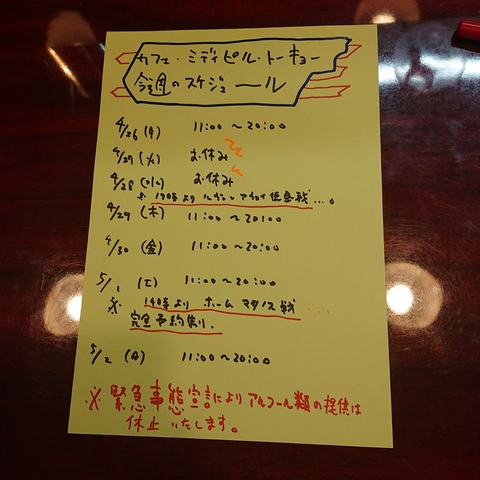 カフェ・ミディピル・トーキョー
今週のスケジュール
4/26 (月) 11:00 ~ 20:00
4/27 (火) お休み
4/28 (水) お休み
※ 19時より ルヴァン アウェイ 徳島戦 ...。
4/29 (木) 11:00 ~ 20:00
4/30 (金) 11:00 ~ 20:00
5/1 (土) 11:00 ~ 20:00
※ 14時より ホーム マリノス戦 ...
完全予約制。
5/2 (日) 11:00 ~ 20:00
※ 緊急事態宣言によりアルコール類の提供は
休止いたします。